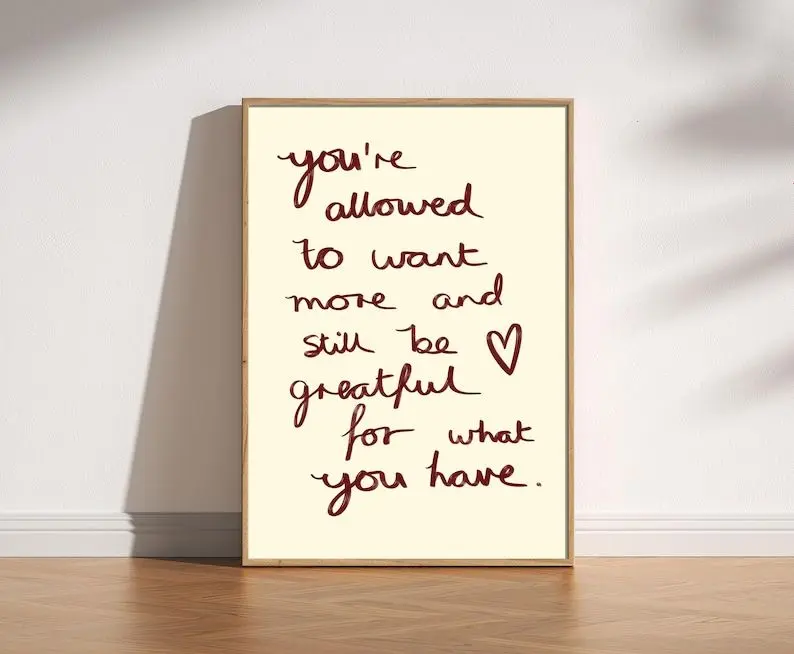 you're
allowed
to want
more and
still be ♡
greatful
for what
you have.